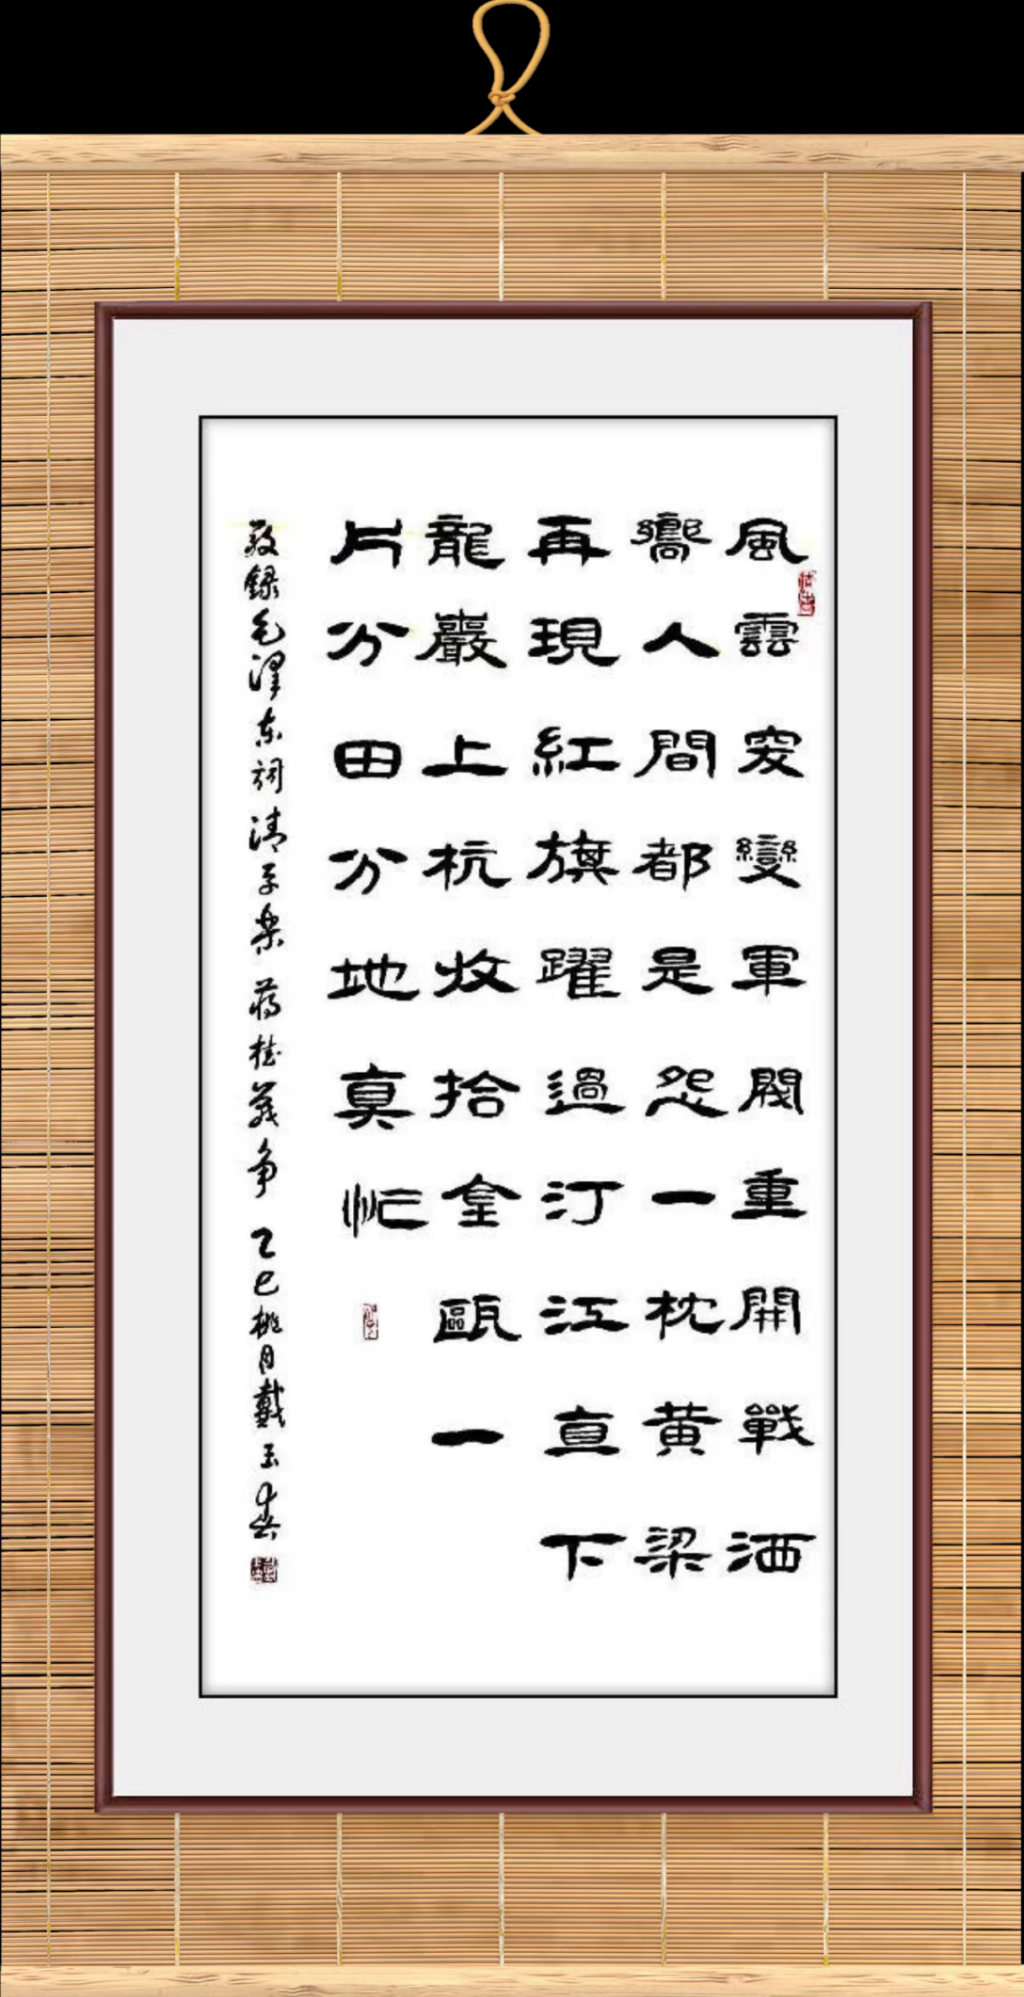 風雲突變軍閥重開戰洒
嚮人間都是怨一枕黄梁
再現紅旗躍過汀江直下
龍巖上杭收拾金甌一
片分田分地真忙
敬録毛澤东詞清平乐 蒋桂战争 乙巳桃月戴玉春